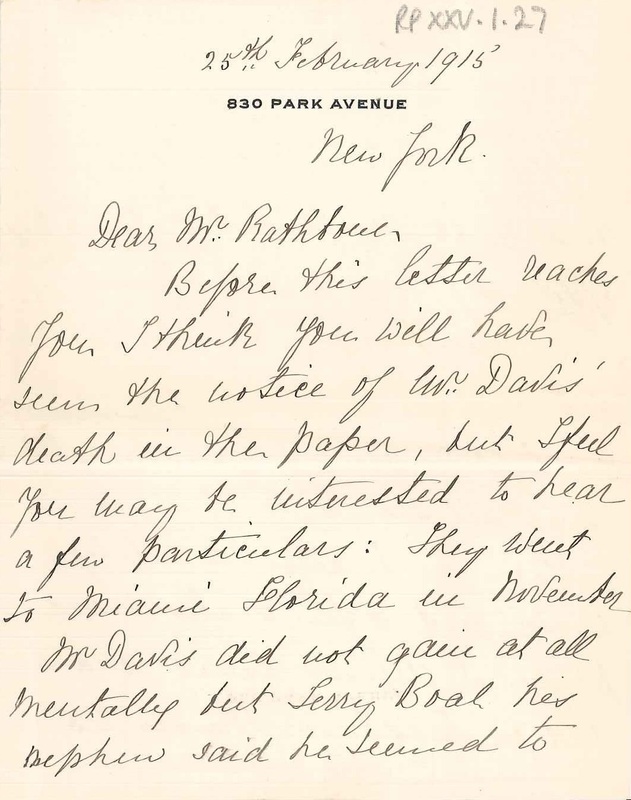 RP XXV.1.27
25th February 1915
830 PARK AVENUE
New York.
Dear Mr. Rathbone
Before this letter reaches
you I think you will have
seen the notice of Mr. Davis'
death in the paper, but I feel
you may be interested to hear
a few particulars: They went
to Miami Florida in November
Mr Davis did not gain at all
mentally but Terry Boal his
nephew said he seemed to